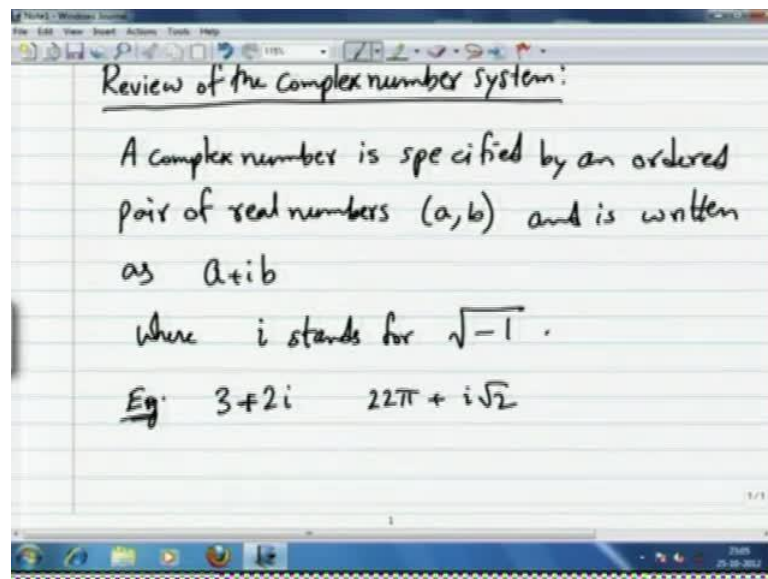 Note1 - Windows Journal
File Edit View Insert Actions Tools Help
115%
Review of the complex number system:
A complex number is specified by an ordered
pair of real numbers (a,b) and is written
as a+ib
where i stands for √-1 .
Eg. 3+2i 22π + i√2
1/1
1
23:05
25-10-2012